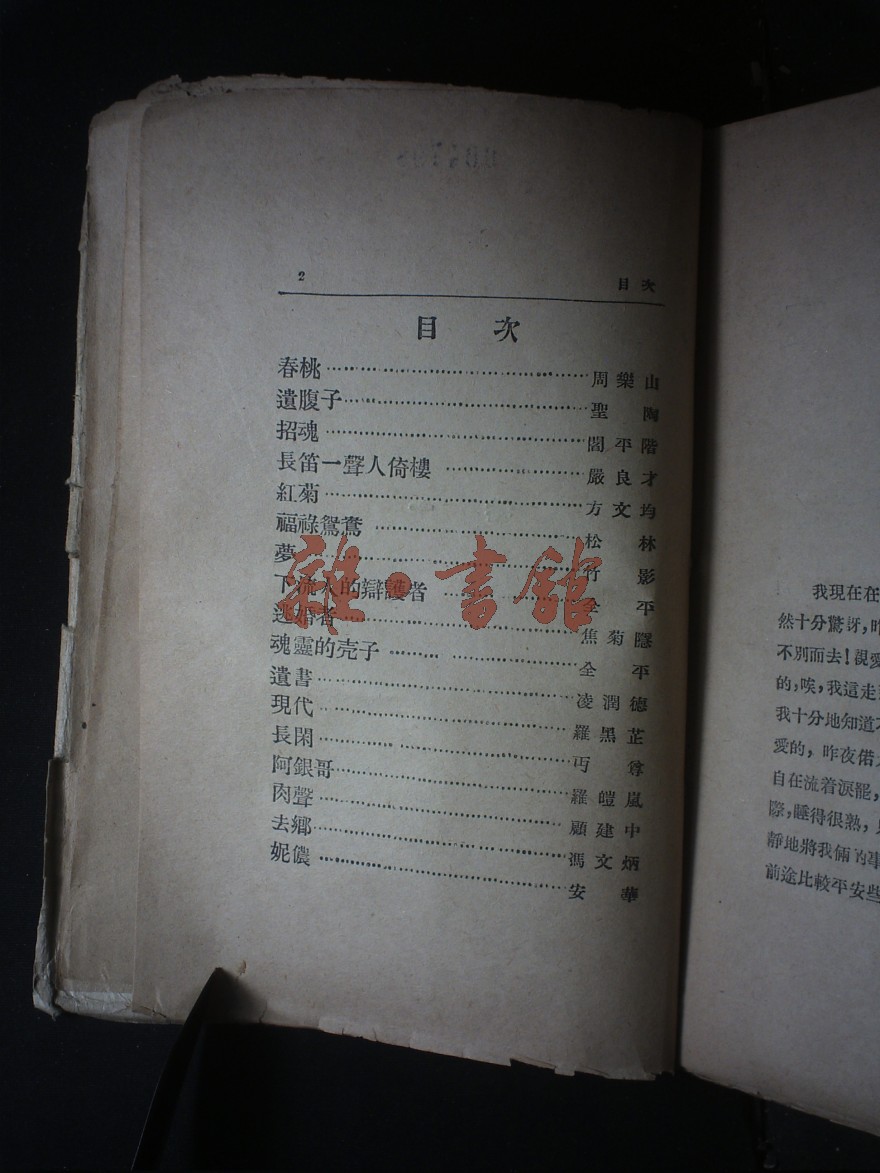 2 目次
目 次
春桃 周樂山
遺腹子 聖陶
招魂 閻平階
長笛一聲人倚樓 嚴良才
紅菊 方文均
福祿鴛鴦 松林
夢 竹影
下流人的辯護者 全平
逃婚者 焦菊隱
魂靈的壳子 全平
遺書 凌潤德
現代 羅黑芷
長閑 丏尊
阿銀哥 羅皚嵐
肉聲 顧建中
去鄉 馮文炳
妮儂 安華
雜·書館
我現在在
然十分驚訝,昨
不別而去!親愛
的,唉,我這走
我十分地知道
愛的,昨夜偌
自在流着淚罷,
際,睡得很熟,
靜地將我倆的事
前途比較平安些